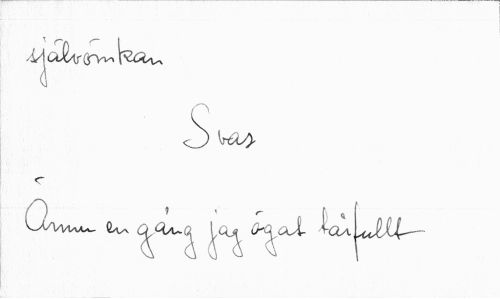 självömkan
Svar
Ännu en gång jag ögat tårfullt